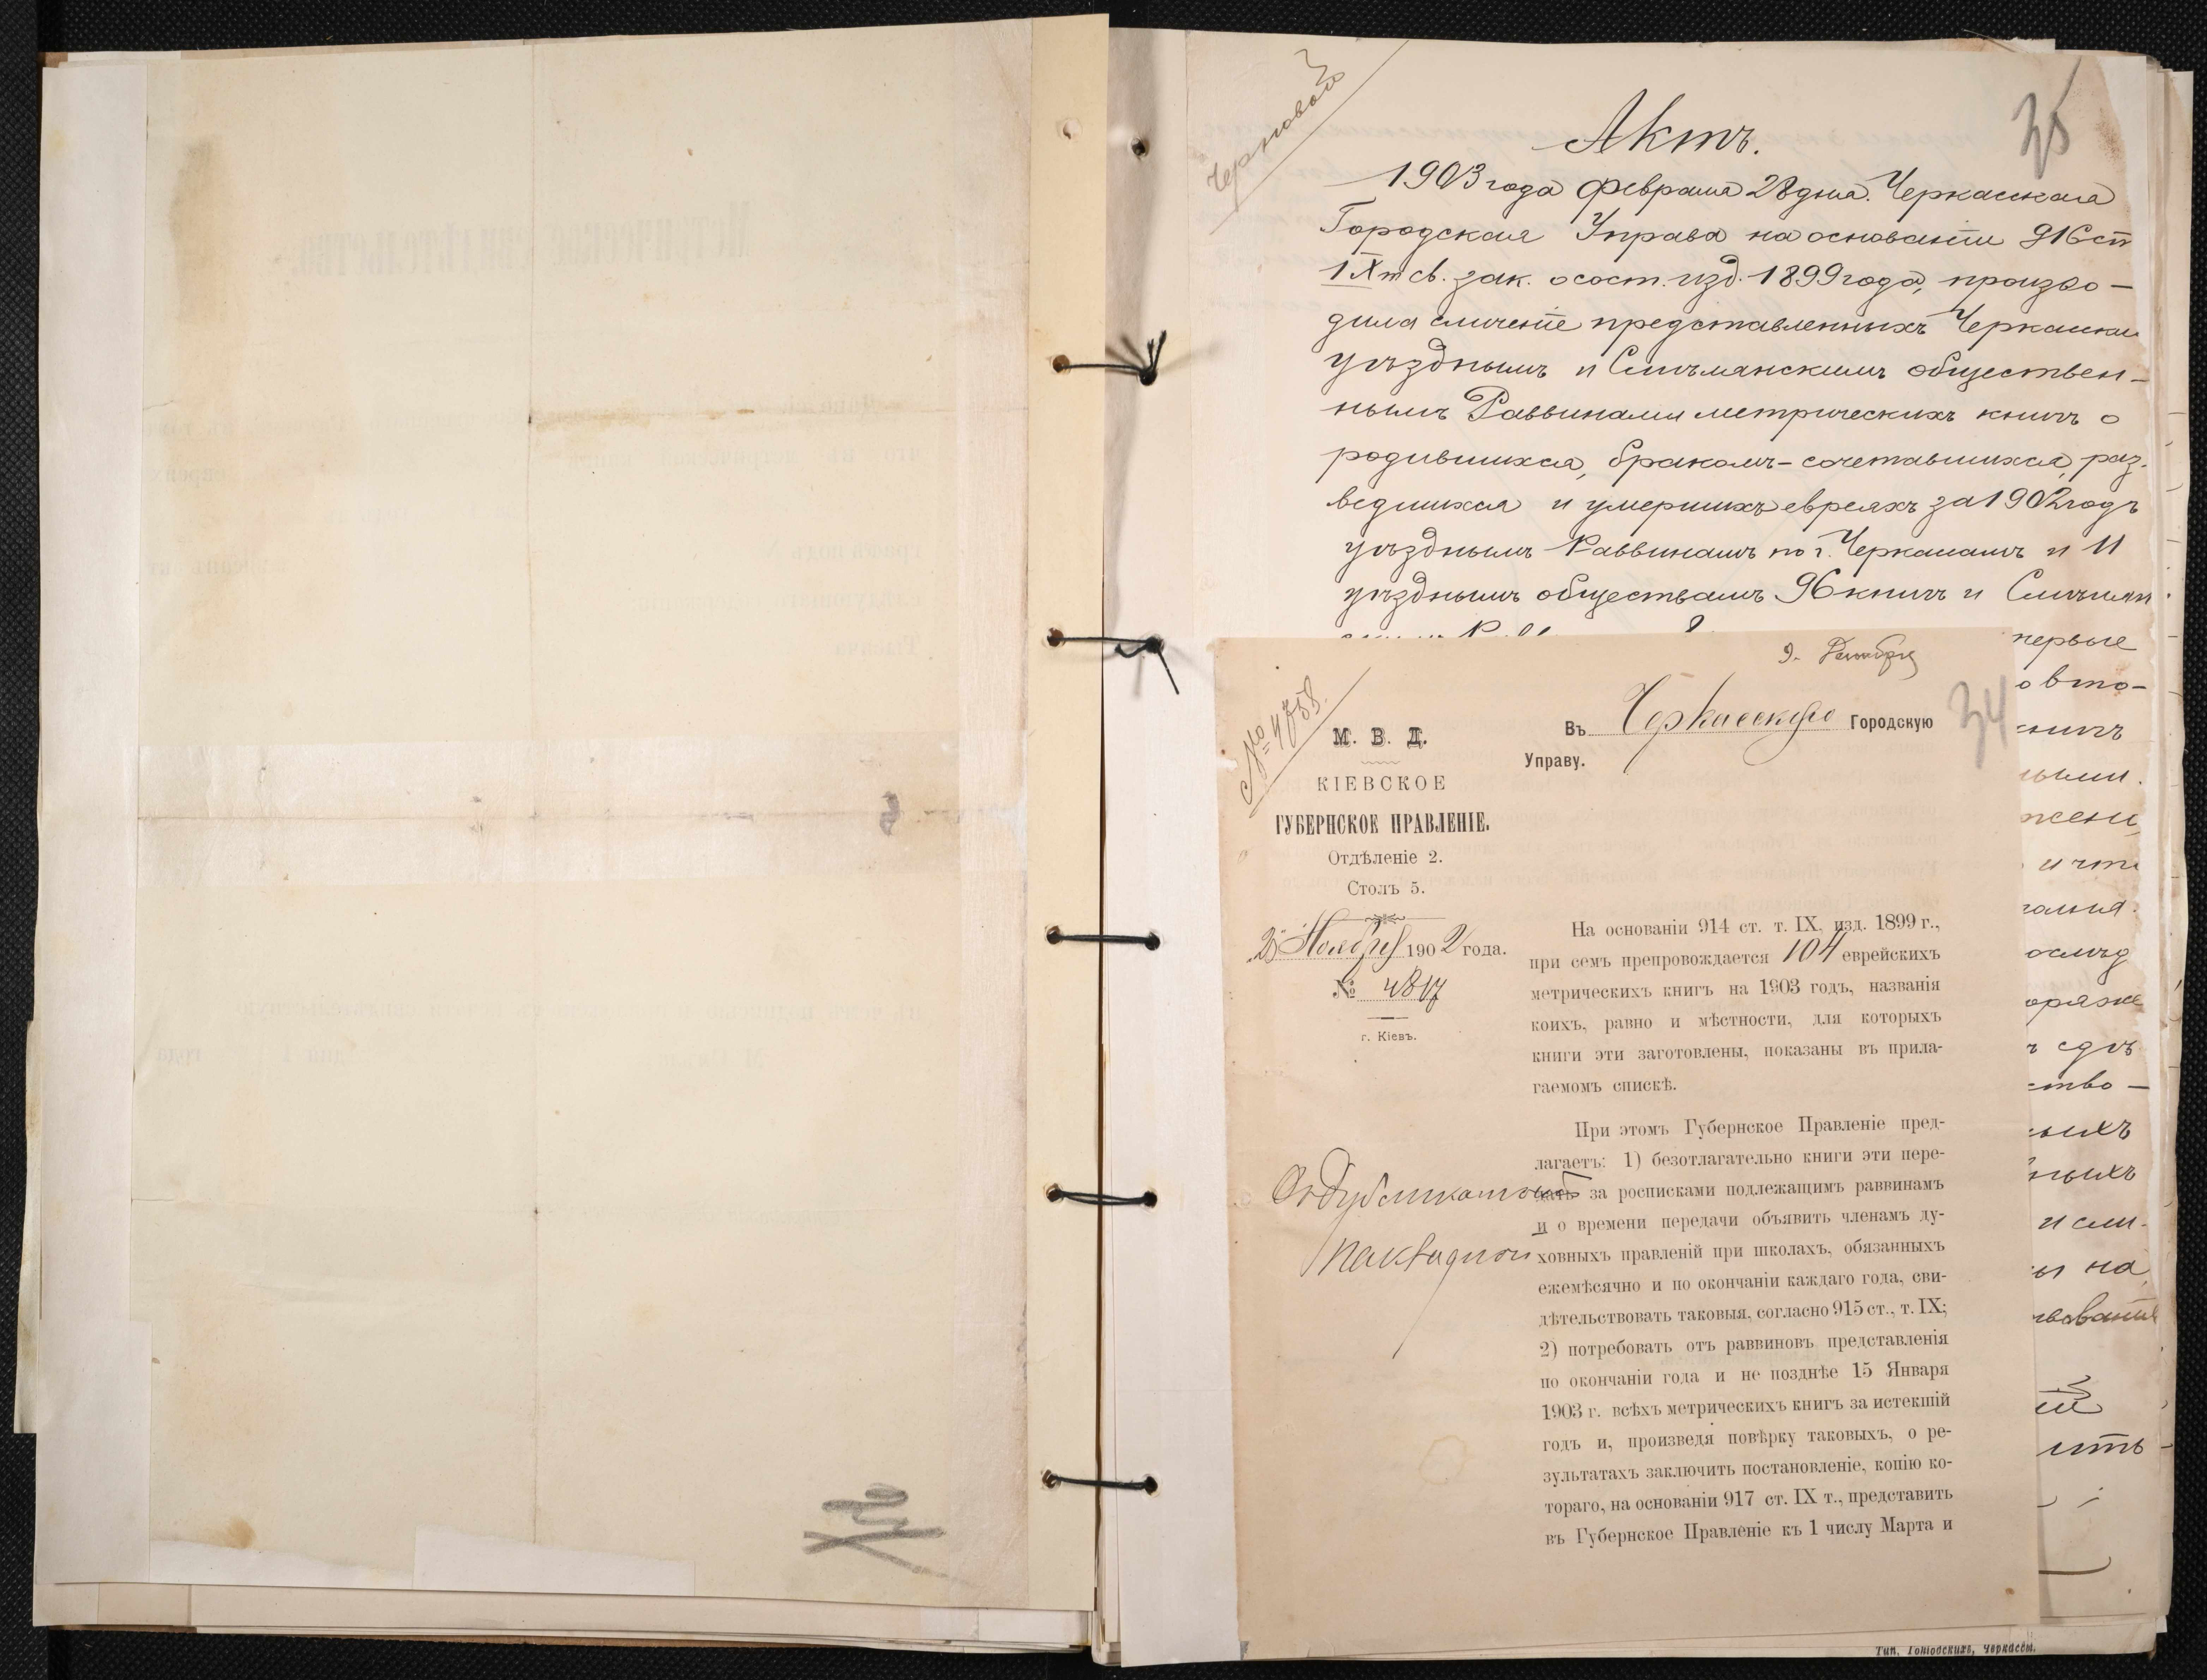 Черновой
35
Актъ.
1903 года февраля 28 дня. Черкасская
Городская Управа на основаніи 916 ст
IX т св. зак. о сост. изд. 1899 года, произво-
дила сличеніе представленныхъ Черкасски
уѣзднымъ и Смѣлянскимъ обществен-
нымъ Раввинами метрическихъ книгъ о
родившихся, бракомъ-сочетавшихся, раз-
ведшихся и умершихъ евреяхъ за 1902 годъ
уѣзднымъ Раввиномъ по г. Черкасамъ и 11
уѣзднымъ обществамъ 96 книгъ и Смѣлян
первые
о вто-
ными.
и что
ство-
и сли-
ы на
9. Декабря
34
№ 4758.
М. В. Д.
КІЕВСКОЕ
ГУБЕРНСКОЕ ПРАВЛЕНІЕ.
Отдѣленіе 2.
Столъ 5.
Ноября 1902 года.
№ 4817
г. Кіевъ.
Въ Черкасскую Городскую
Управу.
На основаніи 914 ст. т. IX, изд. 1899 г.,
при семъ препровождается 104 еврейскихъ
метрическихъ книгъ на 1903 годъ, названія
коихъ, равно и мѣстности, для которыхъ
книги эти заготовлены, показаны въ прила-
гаемомъ спискѣ.
При этомъ Губернское Правленіе пред-
лагаетъ: 1) безотлагательно книги эти пере-
дать за росписками подлежащимъ раввинамъ
и о времени передачи объявить членамъ ду-
ховныхъ правленій при школахъ, обязанныхъ
ежемѣсячно и по окончаніи каждаго года, сви-
дѣтельствовать таковыя, согласно 915 ст., т. IX;
2) потребовать отъ раввиновъ представленія
по окончаніи года и не позднѣе 15 Января
1903 г. всѣхъ метрическихъ книгъ за истекшій
годъ и, произведя повѣрку таковыхъ, о ре-
зультатахъ заключить постановленіе, копію ко-
тораго, на основаніи 917 ст. IX т., представить
въ Губернское Правленіе къ 1 числу Марта и
Съ дубликатомъ
накладной
Тип. Черкассы.